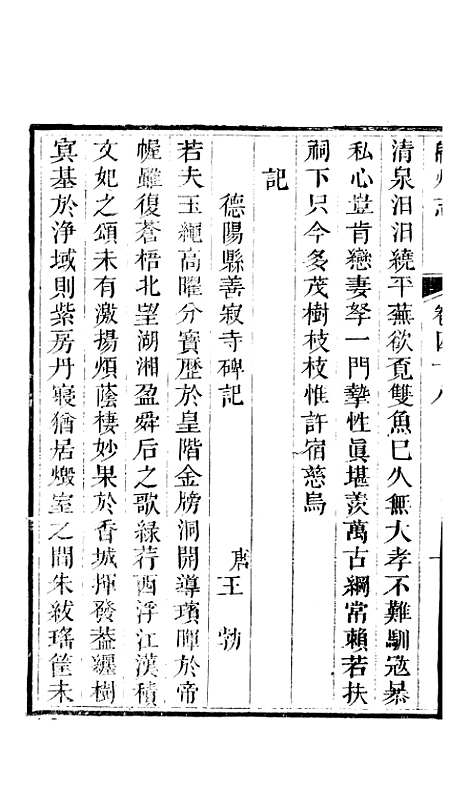 綿州志
卷四十八
清泉汨汨繞平蕪欲覓雙魚巳久無大孝不難馴寇暴
私心豈肯戀妻孥一門摯性眞堪羨萬古綱常賴若扶
祠下只今多茂樹枝枝惟許宿慈烏
記
德陽縣善寂寺碑記
唐王勃
若夫玉繩高曜分寶歷於皇階金牓洞開導璸暉於帝
幄雖復蒼梧北望湖湘盈舜后之歌綠荇西浮江漢積
文妃之頌未有激揚煩蔭棲妙果於香城揮發葢纏樹
寘基於浄域則紫房丹寢猶居燬室之間朱紱瑤筐未